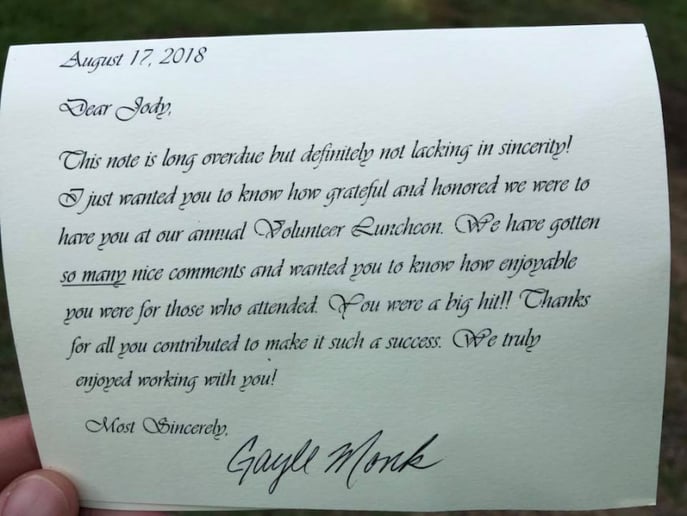 August 17, 2018
Dear Jody,
This note is long overdue but definitely not lacking in sincerity!
I just wanted you to know how grateful and honored we were to
have you at our annual Volunteer Luncheon. We have gotten
so many nice comments and wanted you to know how enjoyable
you were for those who attended. You were a big hit!! Thanks
for all you contributed to make it such a success. We truly
enjoyed working with you!
Most Sincerely,
Gayle Monk